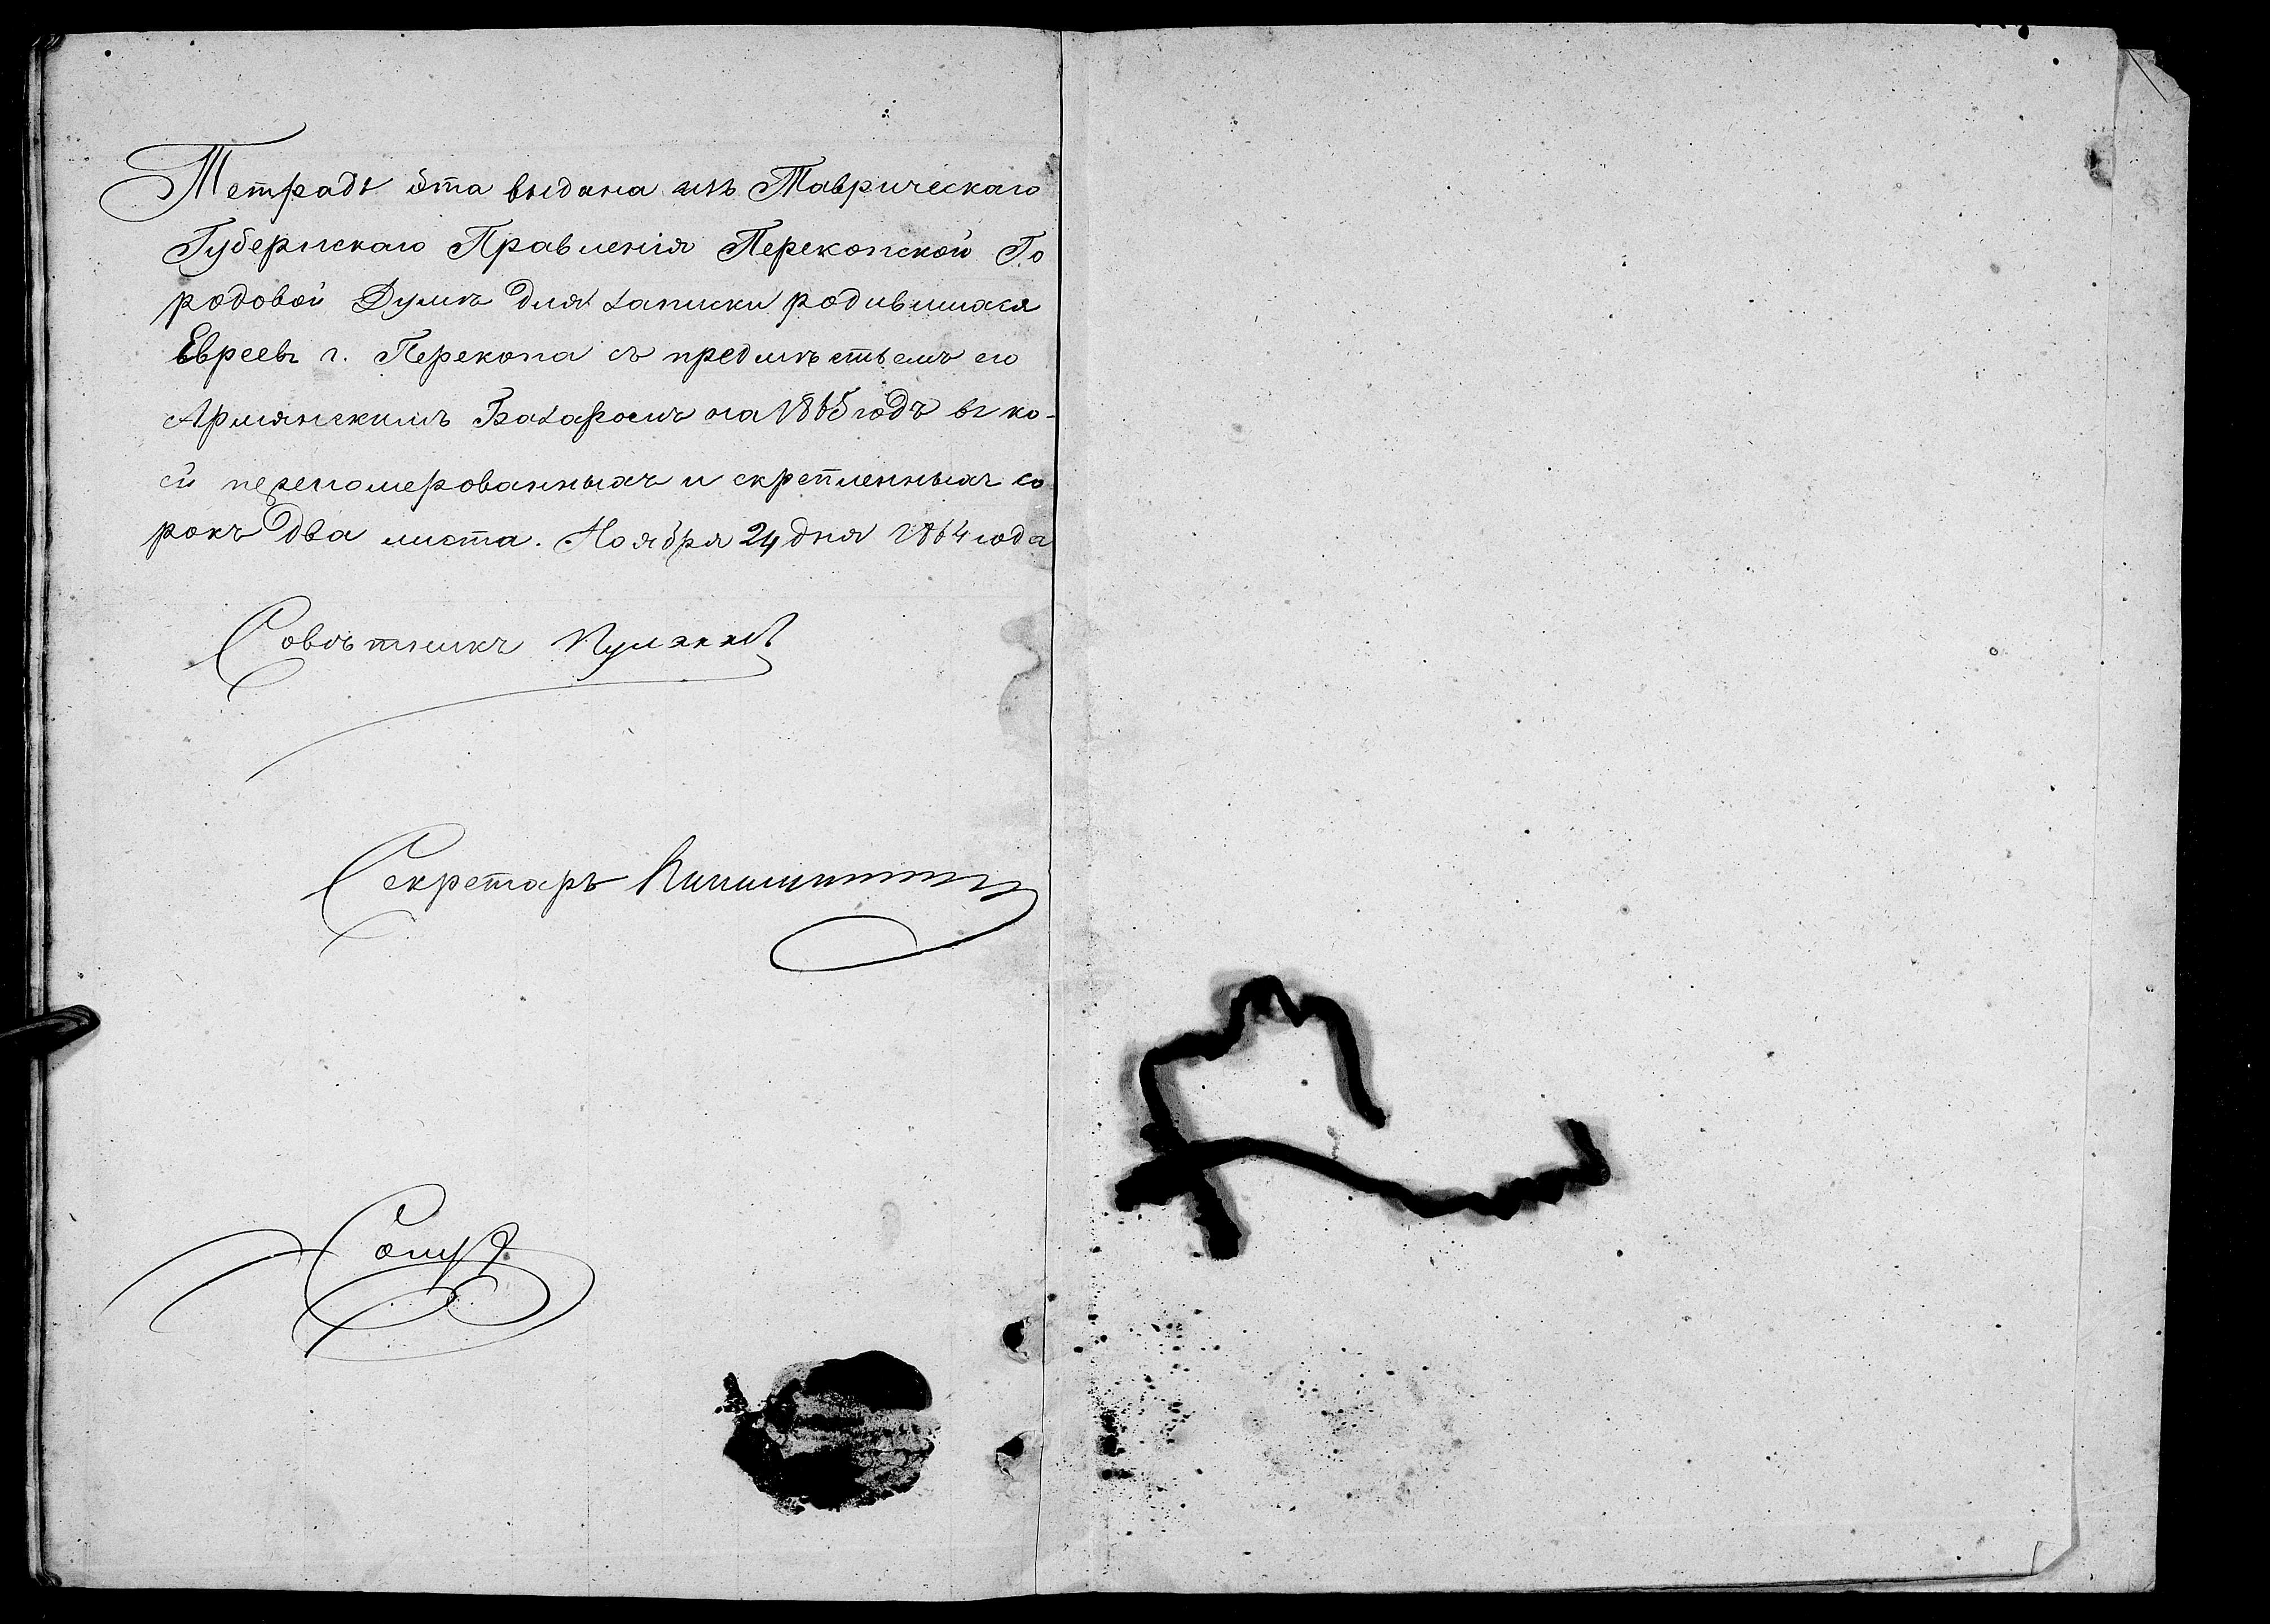 Тетрадь эта выдана изъ Таврическаго
Губернскаго Правленія Перекопской Го
родовой Думѣ для записки родившихся
Евреевъ г. Перекопа съ предмѣстьемъ его
Армянскимъ Базаромъ на 1865 годъ въ ко-
ей переномерованныхъ и скрепленныхъ со
рокъ два листа. Ноября 24 дня 1864 года
Совѣтникъ
Секретарь